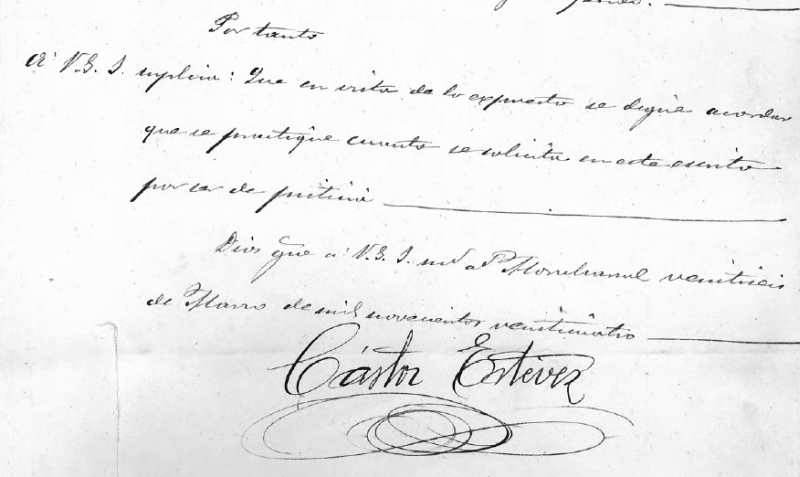 Por tanto
A V.S.I. suplica: Que en vista de lo expuesto se digne acordar
que se practique cuanto se solicita en este escrito
por ser de justicia
Dios gue á V.S.I. ms as Monchanul veintiseis
de Marzo de mil novecientos veinticuatro
Cástor Estévez